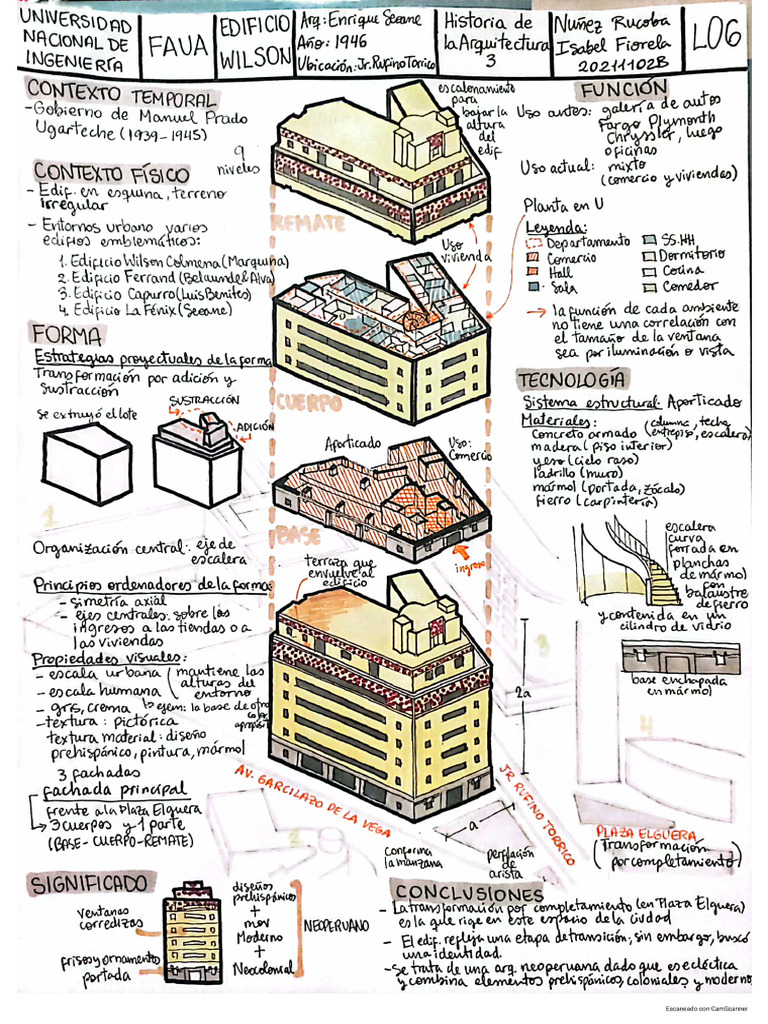 UNIVERSIDAD
NACIONAL DE
INGENIERÍA
FAUA
EDIFICIO
WILSON
Arq: Enrique Seoane
Año: 1946
Ubicación: Jr. Rufino Torrico
Historia de
la Arquitectura
3
Nuñez Rucoba
Isabel Fiorela
20211102B
L06
CONTEXTO TEMPORAL
- Gobierno de Manuel Prado
Ugarteche (1939-1945)
CONTEXTO FÍSICO
- Edif. en esquina, terreno
irregular
- Entornos urbano varios
edificios emblemáticos:
1. Edificio Wilson Colmena (Marquina)
2. Edificio Ferrand (Belaunde & Alva)
3. Edificio Capurro (Luis Benites)
4. Edificio La Fénix (Seoane)
FORMA
Estrategias proyectuales de la forma
Transformación por adición y
sustracción
se extruyó el lote
SUSTRACCIÓN
ADICIÓN
1
Organización central: eje de
escalera
Principios ordenadores de la forma:
- simetría axial
- ejes centrales: sobre los
ingresos a las tiendas o a
las viviendas
Propiedades visuales:
- escala urbana
- escala humana
(mantiene las
alturas del
entorno
- gris, crema
ejem: la base de otro
- textura: pictórica
textura material: diseño
prehispánico, pintura, mármol
3 fachadas
fachada principal
frente a la Plaza Elguera
3 cuerpos y 1 parte
(BASE-CUERPO-REMATE)
9
niveles
escalonamiento
para
bajar la
altura
del
edif
REMATE
Uso
vivienda
CUERPO
Aporticado
Uso:
Comercio
BASE
ingreso
terraza que
envuelve al
edificio
2a
a
AV. GARCILAZO DE LA VEGA
JR. RUFINO TORRICO
2
conforma
la manzana
perfilación
de
arista
FUNCIÓN
Uso antes: galería de autos
Fargo Plymonth
Chryssler, luego
oficinas
Uso actual: mixto
(comercio y viviendas)
Planta en U
Leyenda:
Departamento
Comercio
Hall
Sala
SS.HH
Dormitorio
Cocina
Comedor
→ la función de cada ambiente
no tiene una correlación con
el tamaño de la ventana
sea por iluminación o vista
TECNOLOGÍA
Sistema estructural: Aporticado
Materiales:
concreto armado (columna, techo,
entrepiso, escalera)
madera (piso interior)
yeso (cielo raso)
ladrillo (muro)
mármol (portada, zócalo)
fierro (carpintería)
escalera
curva
forrada en
planchas
de mármol
con
balaustre
de fierro
y contenida en un
cilindro de vidrio
base enchapada
en mármol
3
4
PLAZA ELGUERA
(Transformación
por completamiento)
SIGNIFICADO
ventanas
corredizas
frisos y ornamentos
portada
diseños
prehispánicos
+
mov
Moderno
+
Neocolonial
NEOPERUANO
CONCLUSIONES
- La transformación por completamiento (en Plaza Elguera)
es la que rige en este espacio de la ciudad
- El edif. refleja una etapa de transición, sin embargo, buscó
una identidad.
- Se trata de una arq. neoperuana dado que es ecléctica
y combina elementos prehispánicos, coloniales y moderno
Escaneado con CamScanner